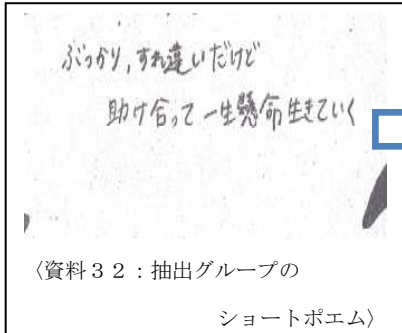 ぶつかり,すれ違いだけど
助け合って一生懸命生きていく
〈資料32:抽出グループの
ショートポエム〉